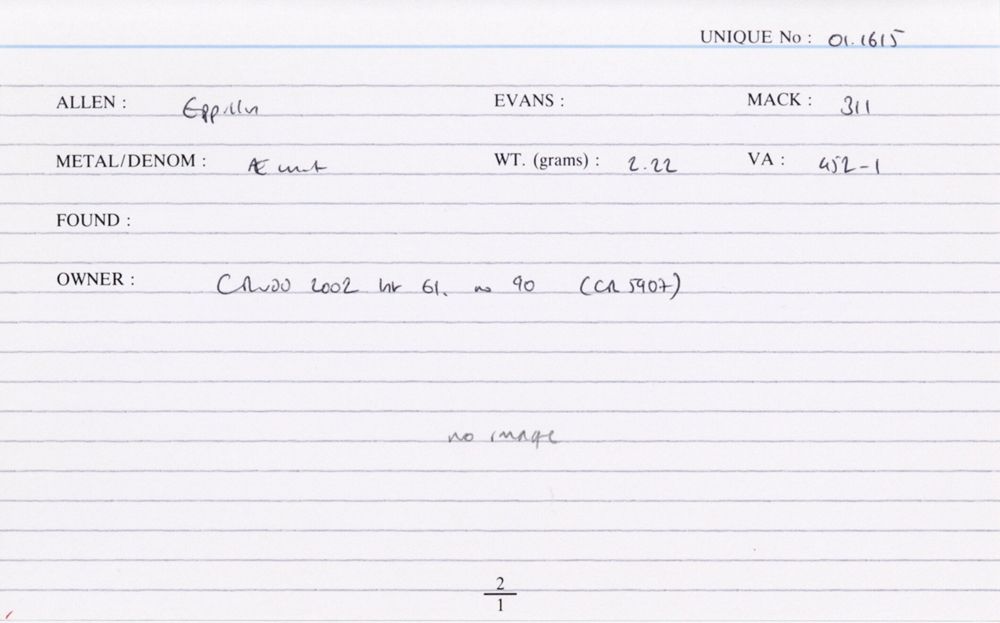 UNIQUE No : 01.1615
ALLEN : Eppillus EVANS : MACK : 311
METAL/DENOM : Æ unit WT. (grams) : 2.22 VA : 452-1
FOUND :
OWNER : 2002 61. no 90 (CR 5907)
no image
2
1